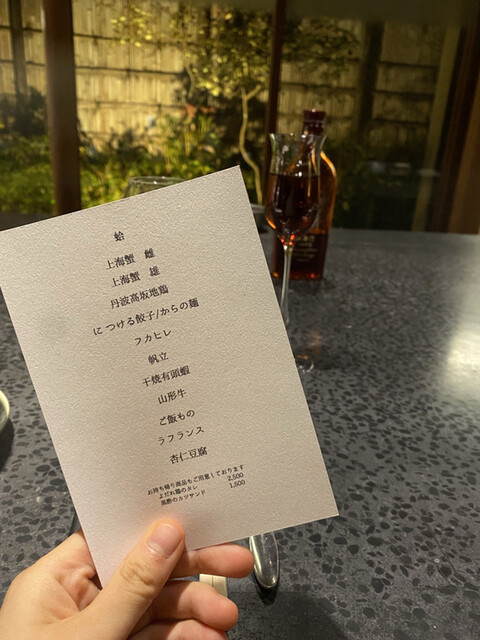 蛤
上海蟹　雌
上海蟹　雄
丹波高坂地鶏
につける餃子/からの麺
フカヒレ
帆立
干焼有頭蝦
山形牛
ご飯もの
ラフランス
杏仁豆腐
お持ち帰り商品もご用意しております
よだれ鶏のタレ 2,500
黒酢のカツサンド 1,500